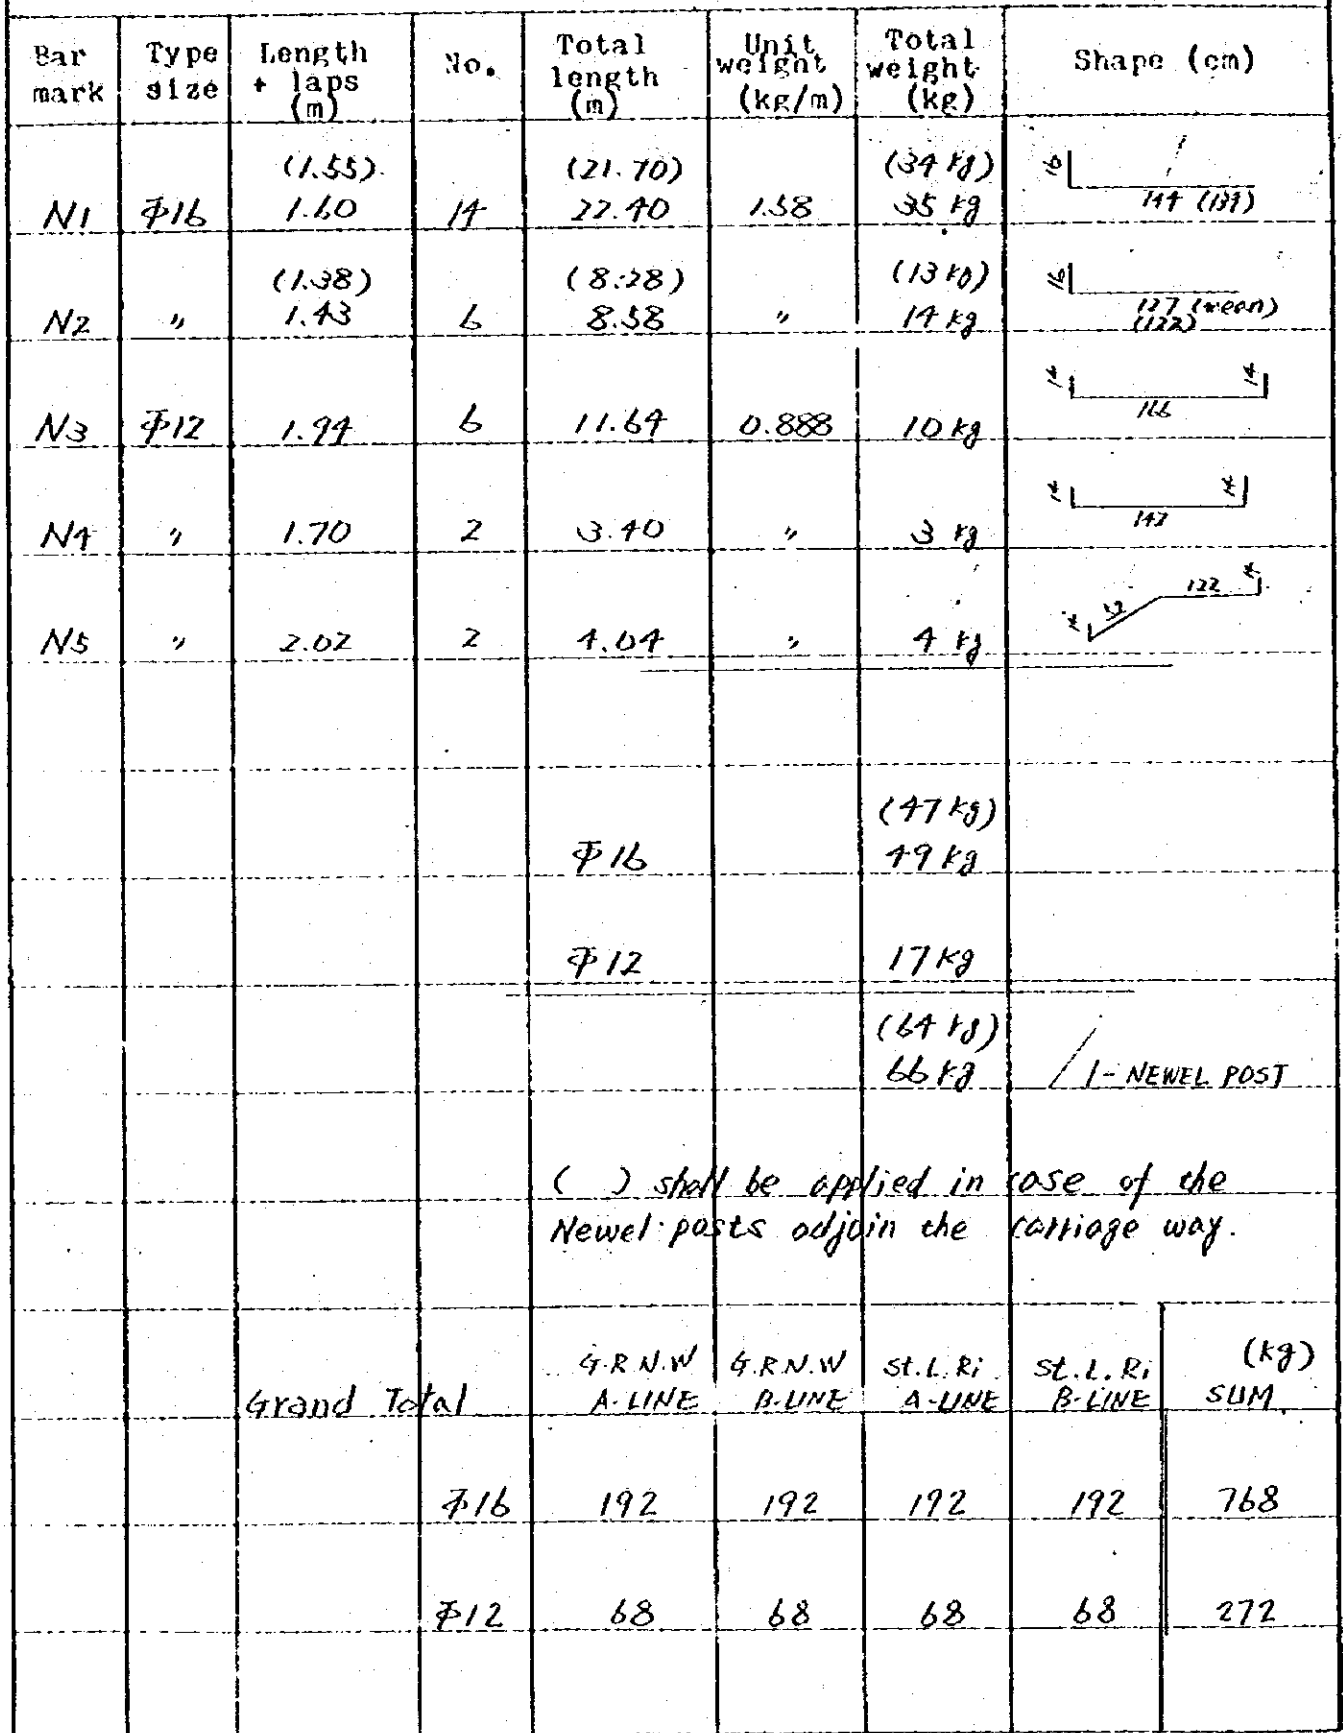 Bar mark | Type size | Length + laps (m) | No. | Total length (m) | Unit weight (kg/m) | Total weight (kg) | Shape (cm)
(1.55) (21.70) (34 kg)
N1 Φ16 1.60 14 22.40 1.58 35 kg 16 144 (139)
(1.38) (8.28) (13 kg)
N2 〃 1.43 6 8.58 〃 14 kg 16 127 (mean)
(122)
N3 Φ12 1.94 6 11.64 0.888 10 kg 14 166 14
N4 〃 1.70 2 3.40 〃 3 kg 14 142 14
N5 〃 2.02 2 4.04 〃 4 kg 14 52 122 14
(47 kg)
Φ16 49 kg
Φ12 17 kg
(64 kg)
66 kg / 1-NEWEL POST
( ) shall be applied in case of the
Newel posts adjoin the carriage way.
G.R.N.W G.R.N.W St.L.Ri St.L.Ri (kg)
Grand Total A-LINE B-LINE A-LINE B-LINE SUM
Φ16 192 192 192 192 768
Φ12 68 68 68 68 272